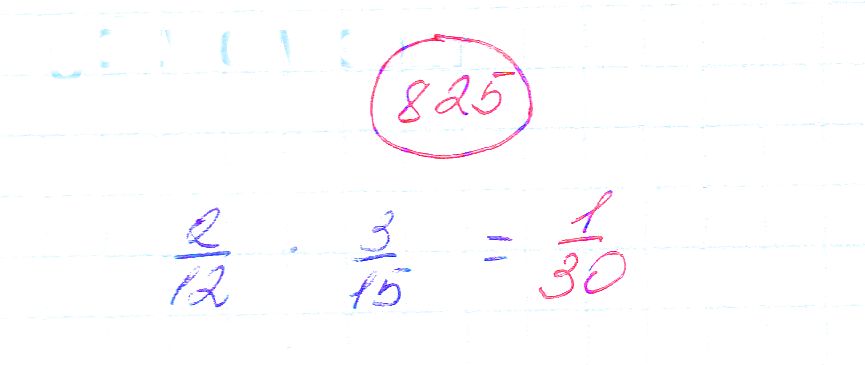 825
2/12 · 3/15 = 1/30